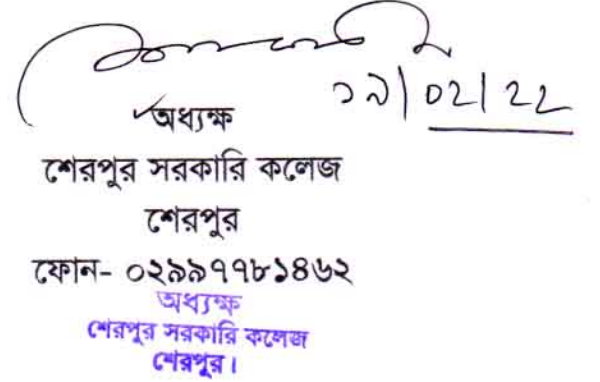 ১৯/০২/২২
অধ্যক্ষ
শেরপুর সরকারি কলেজ
শেরপুর
ফোন- ০২৯৯৭৭৮১৪৬২
অধ্যক্ষ
শেরপুর সরকারি কলেজ
শেরপুর।